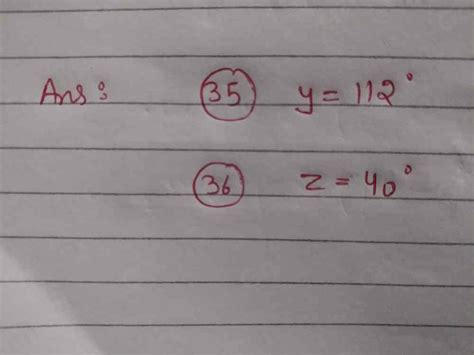 Ans: 35 y = 112°
36 z = 40°